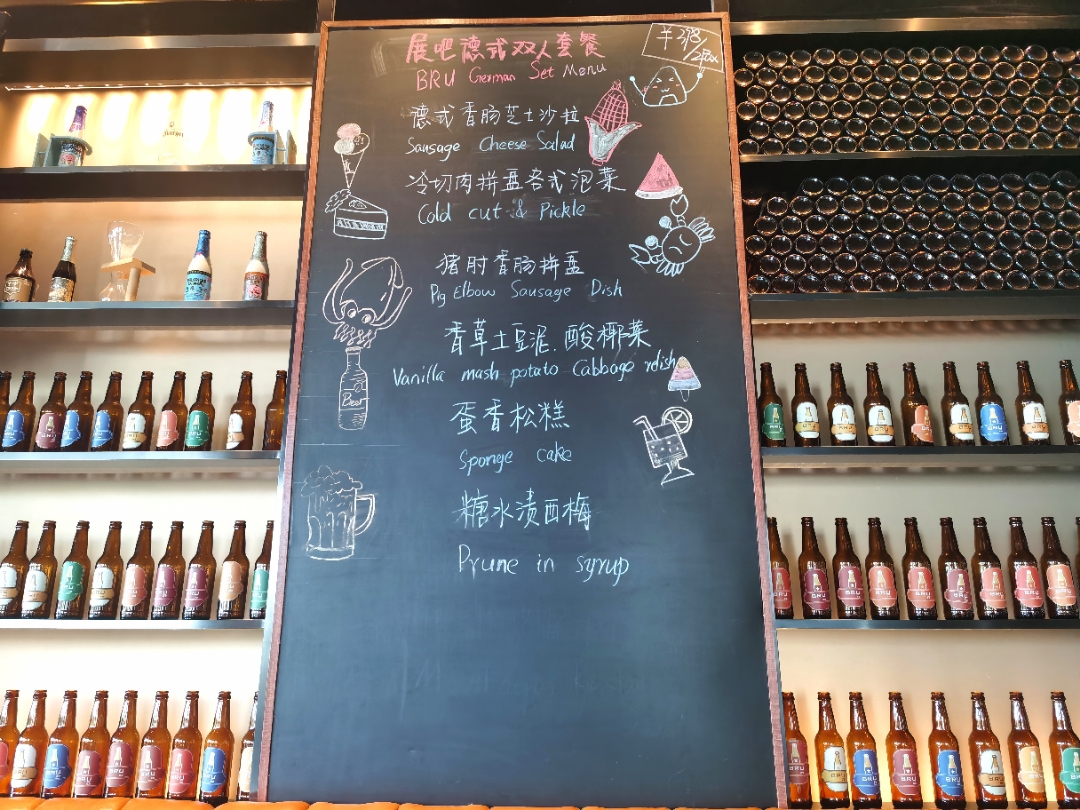 展吧德式双人套餐
BRU German Set Menu
德式香肠芝士沙拉
Sausage Cheese Salad
冷切肉拼盘各式泡菜
Cold cut & Pickle
猪肘香肠拼盘
Pig Elbow Sausage Dish
香草土豆泥.酸椰菜
Vanilla mash potato Cabbage
蛋香松糕
Sponge cake
糖水渍西梅
Prune in syrup
Beer
BRU